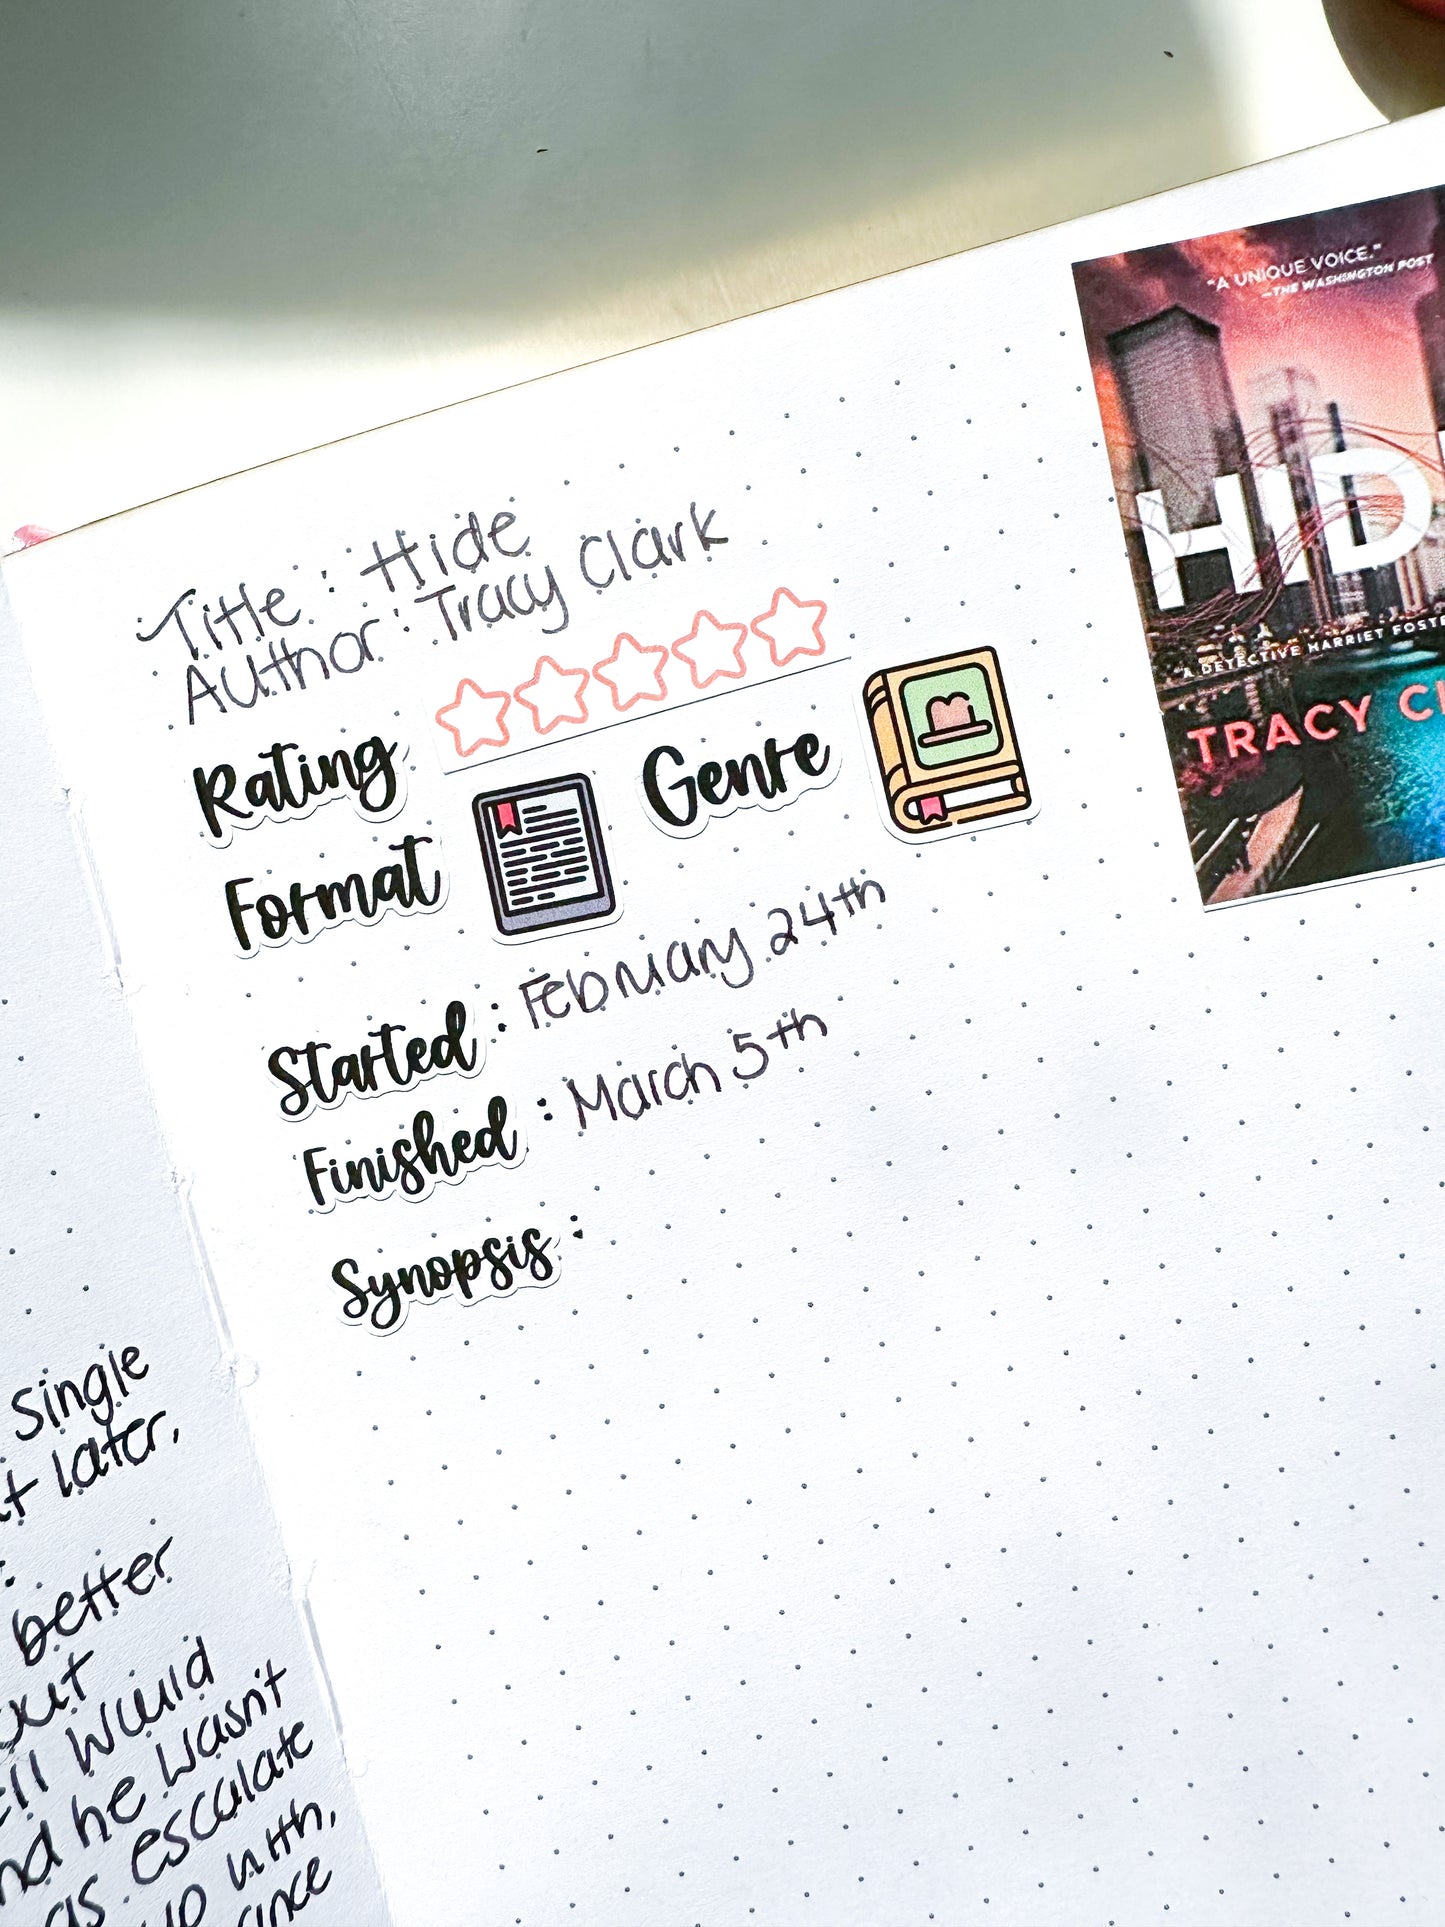 Title : Hide
Author : Tracy Clark
Rating
Genre
Format
Started : February 24th
Finished : March 5th
Synopsis :
"A UNIQUE VOICE."
—THE WASHINGTON POST
HID
A DETECTIVE HARRIET FOSTE
TRACY CL
single
t later,
better
out
ll would
nd he wasn't
as escalate
up with,
ance